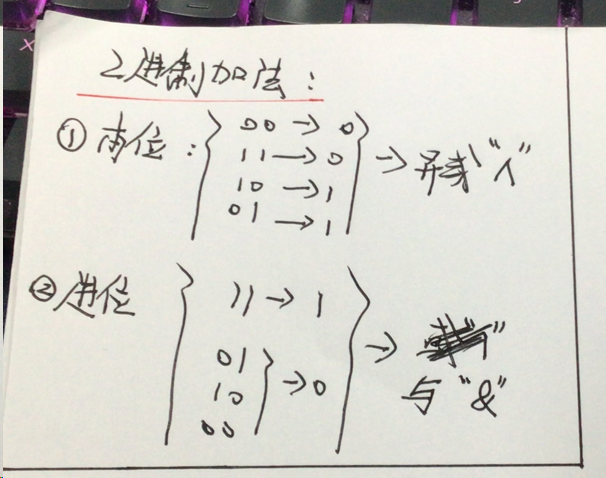 2进制加法:
①本位: 00→0
11→0
10→1
01→1
→异或"^"
②进位 11→1
01
10
00
→0
→
与"&"